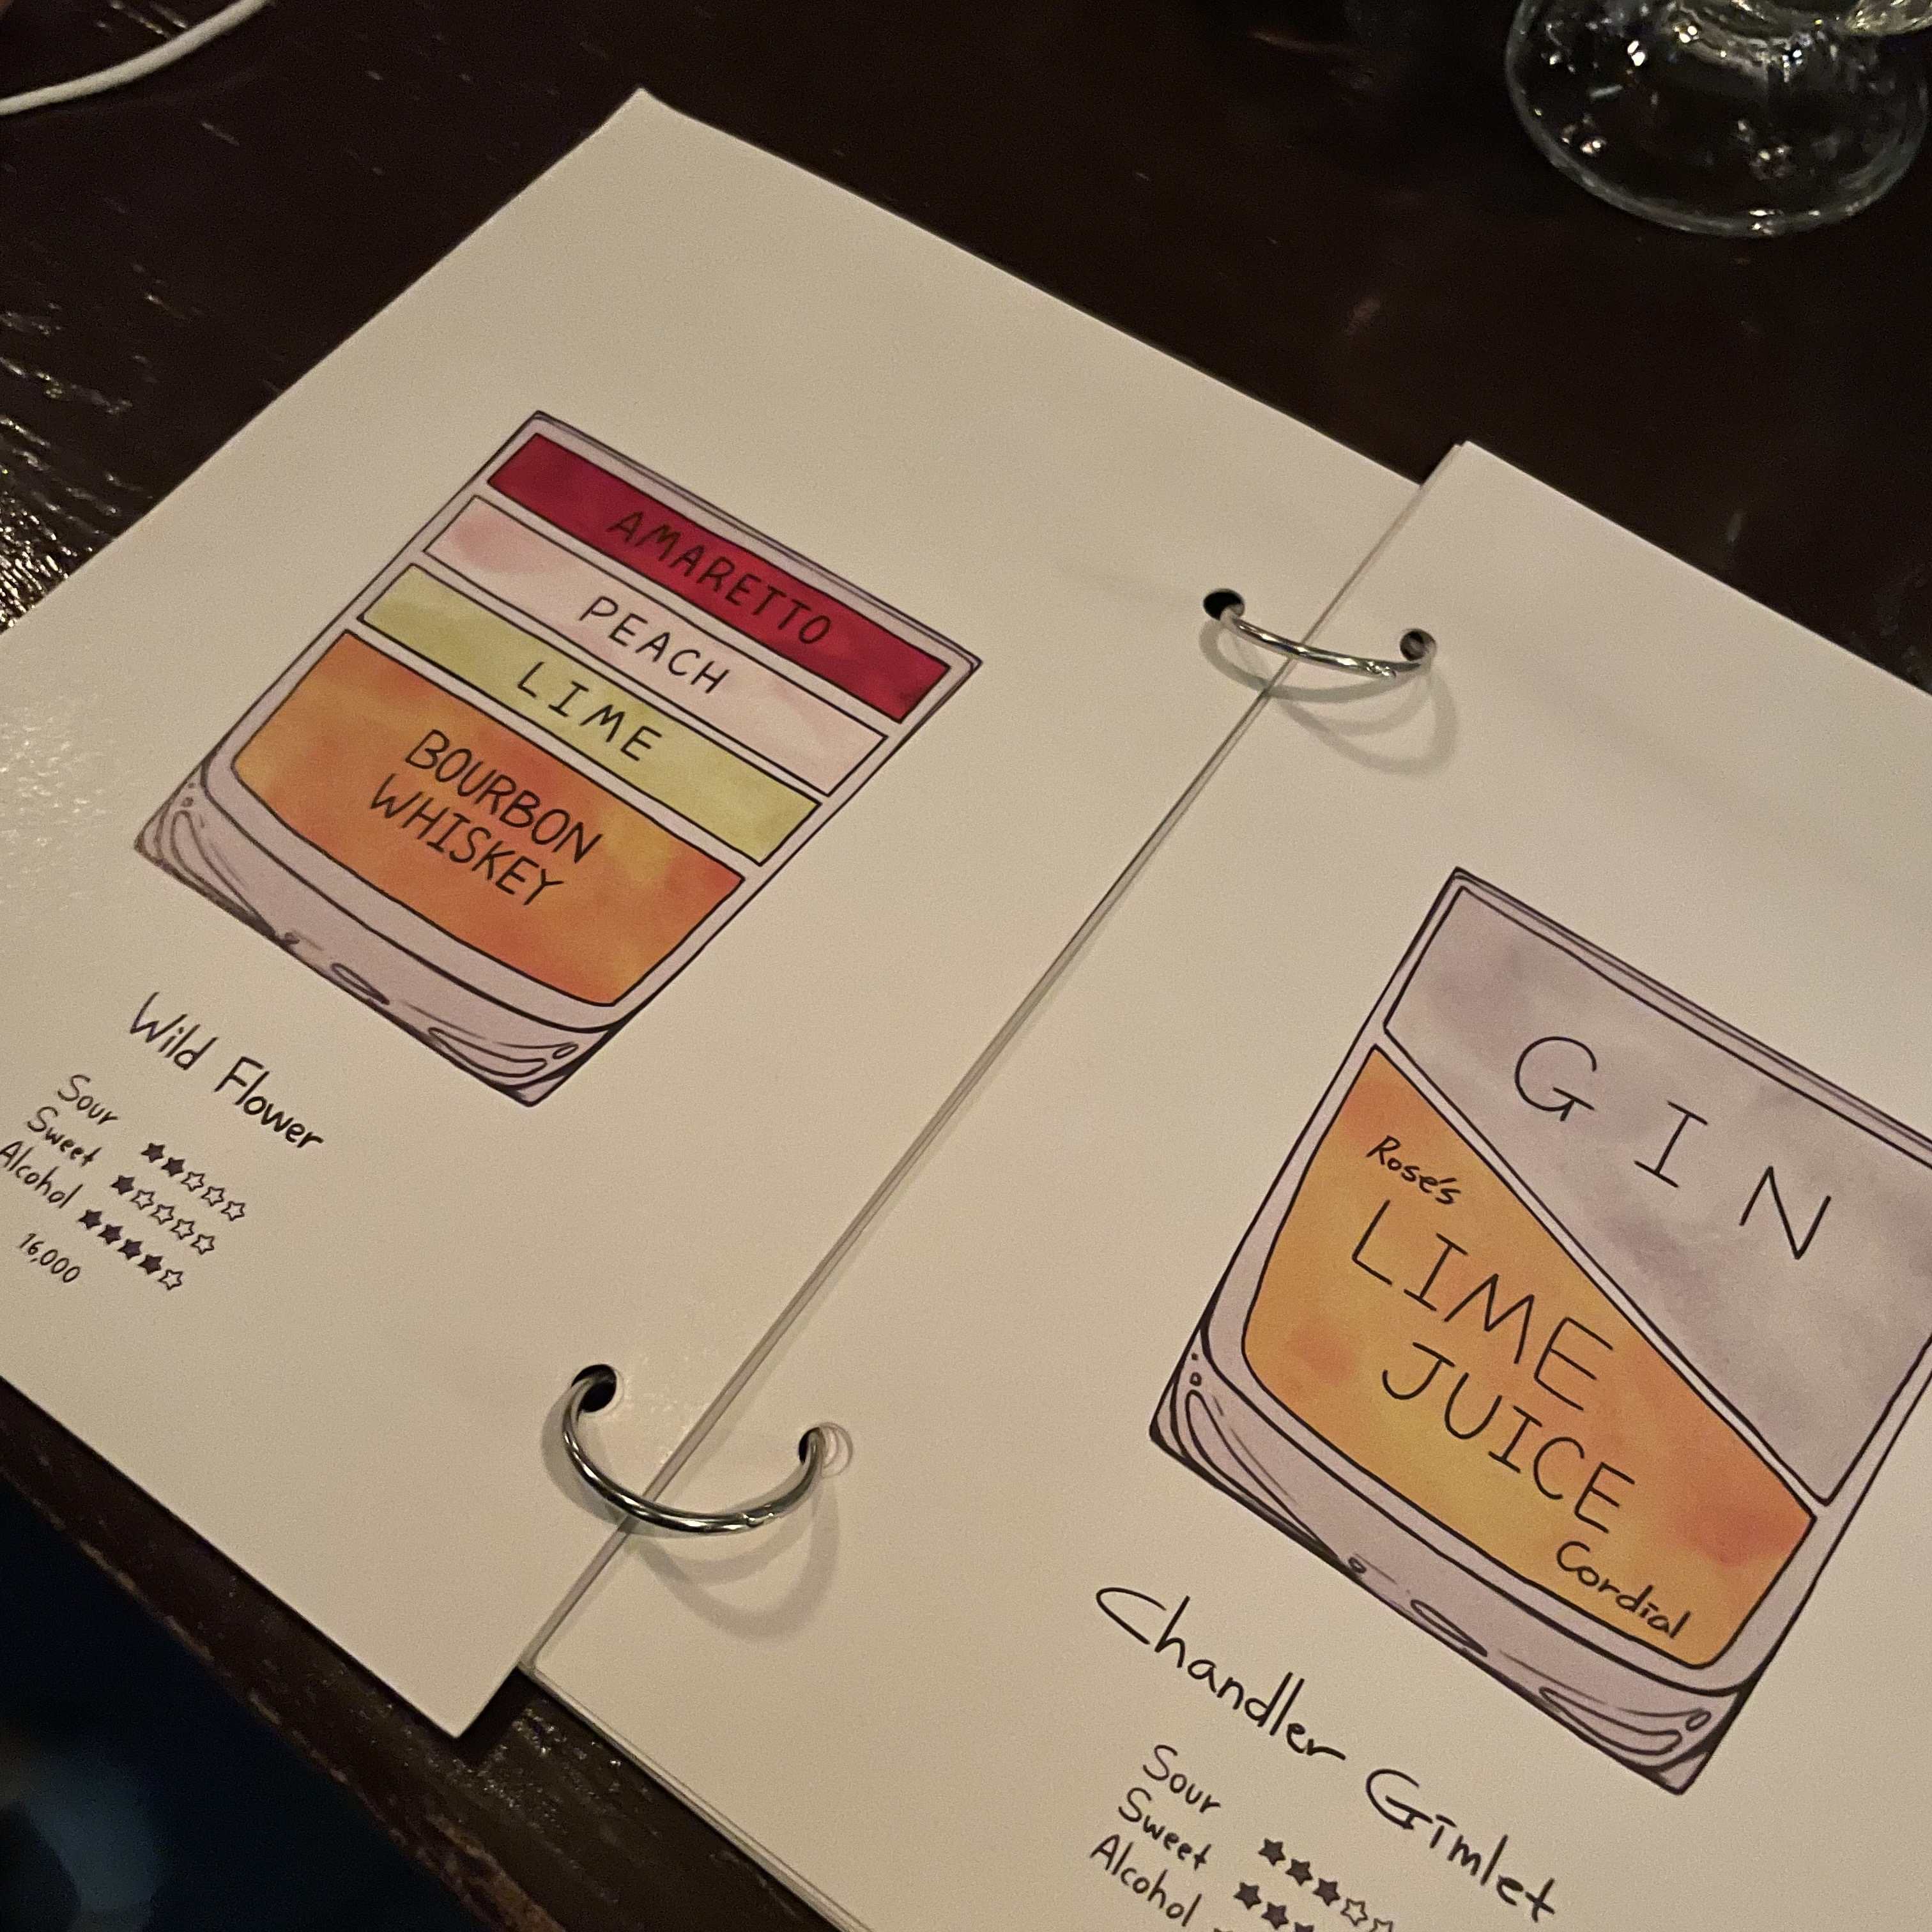 AMARETTO
PEACH
LIME
BOURBON
WHISKEY
Wild Flower
Sour ★★☆☆☆
Sweet ★☆☆☆☆
Alcohol ★★★★☆
16,000
GIN
Rose's
LIME
JUICE
Cordial
Chandler Gimlet
Sour ★★★☆☆
Sweet ★★★
Alcohol